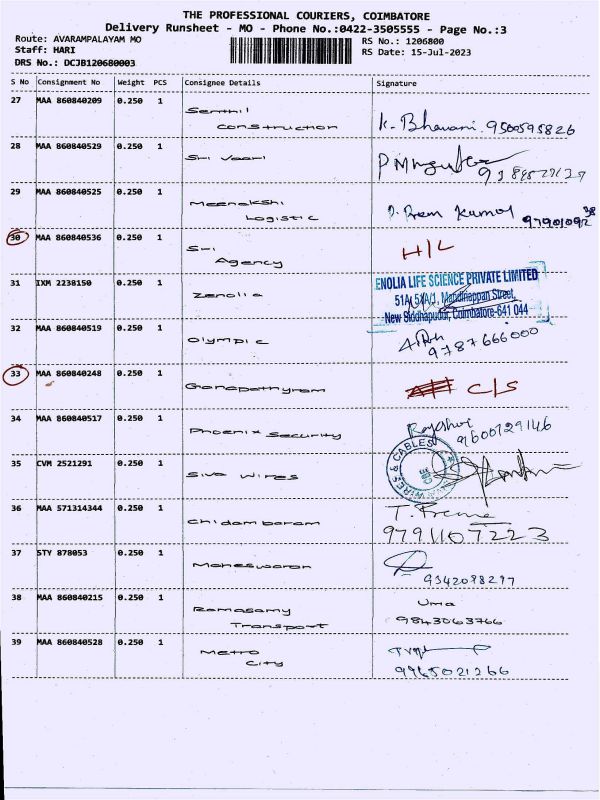 THE PROFESSIONAL COURIERS, COIMBATORE
Delivery Runsheet - MO - Phone No.:0422-3505555 - Page No.:3
Route: AVARAMPALAYAM MO RS No.: 1206800
Staff: HARI RS Date: 15-Jul-2023
DRS No.: DCJB120680003
S No Consignment No Weight PCS Consignee Details Signature
27 MAA 860840209 0.250 1 Senthil
Construction K. Bhavani 9500595826
28 MAA 860840529 0.250 1 Sri Vaari
29 MAA 860840525 0.250 1 Meenakshi
Logistic D. Prem Kumar
30 MAA 860840536 0.250 1 Sri
Agency H/L
31 IXM 2238150 0.250 1 Zenolia
ENOLIA LIFE SCIENCE PRIVATE LIMITED
51A, 51A/1, Mandhiappan Street,
New Siddhapudur, Coimbatore-641 044
32 MAA 860840519 0.250 1 Olympic
9787666000
33 MAA 860840248 0.250 1 Ganapathyram C/S
34 MAA 860840517 0.250 1 Phoenix Security
9600729146
35 CVM 2521291 0.250 1 Siva Wires
WIRES & CABLES
36 MAA 571314344 0.250 1 Chidambaram T. Prema
9791107223
37 STY 878053 0.250 1 Maheswaran
9342098297
38 MAA 860840215 0.250 1 Ramasamy
Transport Uma
9843063766
39 MAA 860840528 0.250 1 Metro
City
9965021266